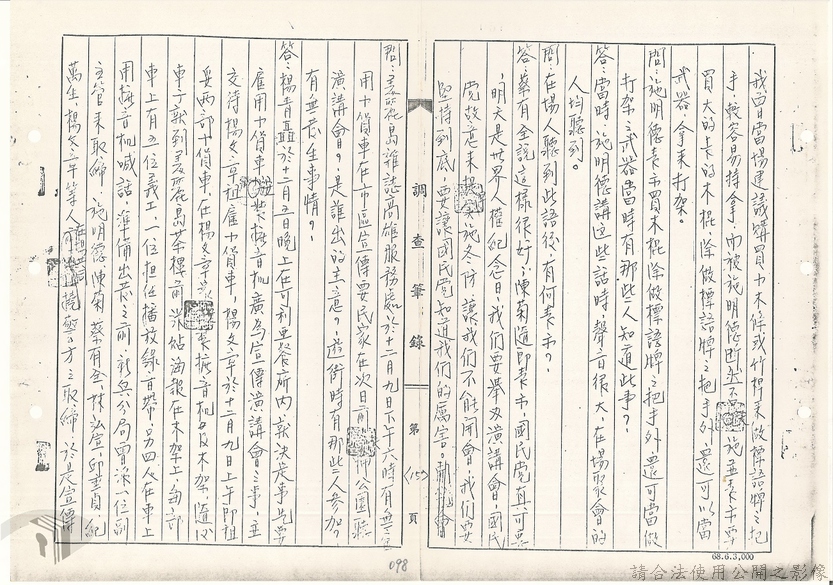 我曾當場建議購買小木條或竹桿來做標語牌之把
手較容易持拿，而被施明德斷然不　施並表示要
買大的卡的木棍除做標語牌之把手外，還可以當
武器，拿來打架。
問：施明德表示買木棍除做標語牌之把手外還可當做
打架之武器當時有那些人知道此事？
答：當時，施明德講這些話時，聲音很大，在場聚會的
人均聽到。
問：在場人聽到此語後，有何表示？
答：蔡有全說這樣很好，陳菊隨即表示，國民黨真可惡
，明天是世界人權紀念日，我們要舉辦演講會，國民
黨故意來　實施冬防讓我們不能開會，我們要
堅持到底，要讓國民黨知道我們的厲害。
調查筆錄
第(15)頁
問：美麗島雜誌高雄服務處於十二月九日下午六時有無
用小貨車在市區宣傳要民眾在次日前　公園聽
演講會？是誰出的主意？遊街時有那些人參加？
有無發生事情？
答：楊青矗於十二月五日晚上在可利亞餐所內就決定事先要
雇用小貨車　裝擴音機廣為宣傳演講會之事，並
交待楊文章租雇小貨車，楊文章於十二月九日上午即租
妥兩部小貨車，在楊文章　裝擴音機及木架，隨後
車子就到美麗島茶棧前張貼海報在木架上，每部
車上有五位義工，一位担任播放錄音帶，另四人在車上
用擴音機喊話，準備出發之前，新興分局曾派一位副
主管來取締，施明德、陳菊、蔡有全、林弘宣、邱垂貞、紀
萬生、楊文章等人　警方之取締，於是宣傳
098
68.6.3,000
請合法使用公開之影像